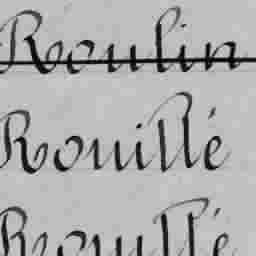 Roulin
Rouillé
Rouillé